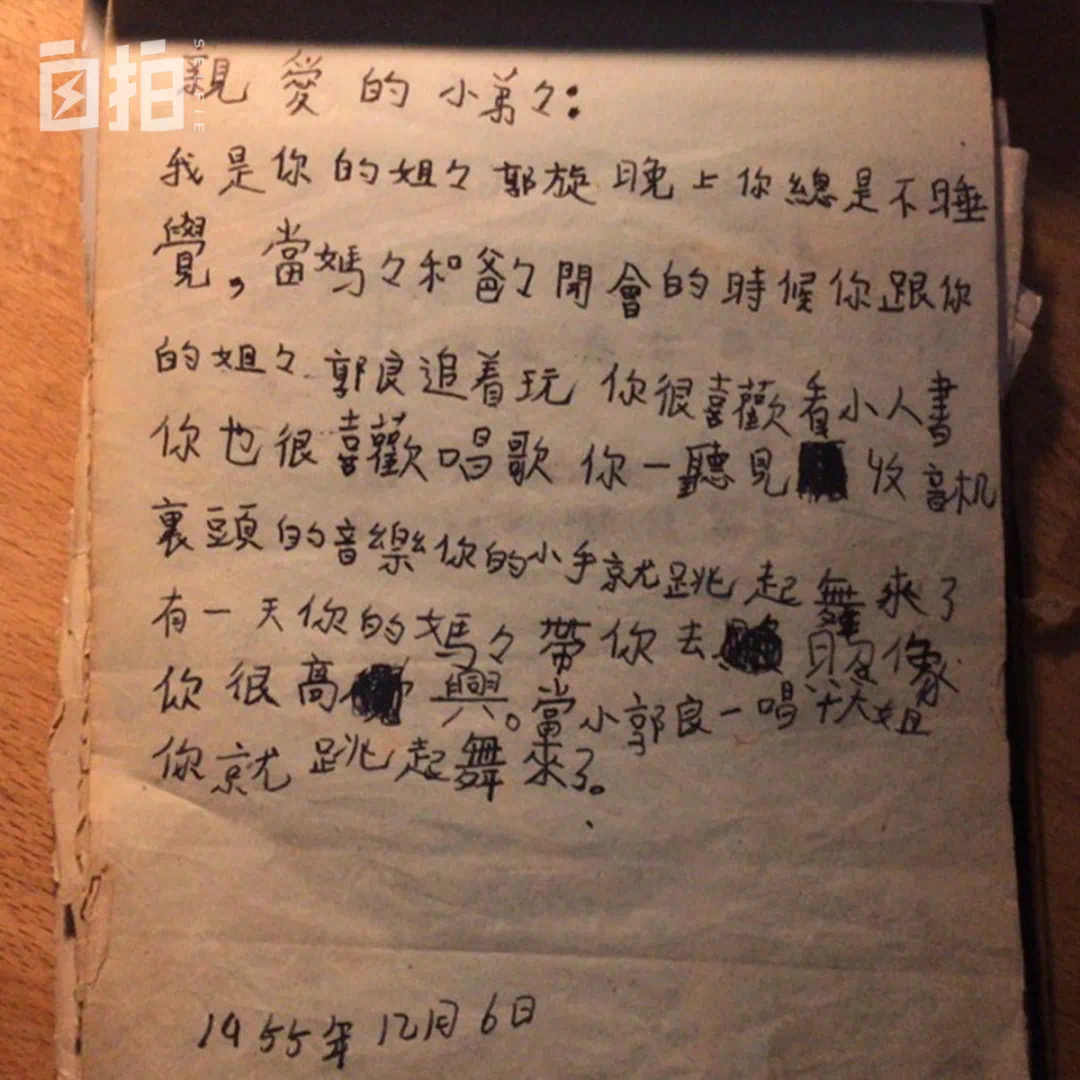 自拍
SELFIE
親愛的小弟々：
我是你的姐々郭旋晚上你總是不睡
覺，當媽々和爸々開會的時候你跟你
的姐々郭良追着玩 你很喜歡看小人書
你也很喜歡唱歌 你一聽見收音机
裏頭的音樂你的小手就跳起舞來了
有一天你的媽々帶你去照像
你很高興。當小郭良一唱大姐
你就跳起舞來了。
1955年12月6日